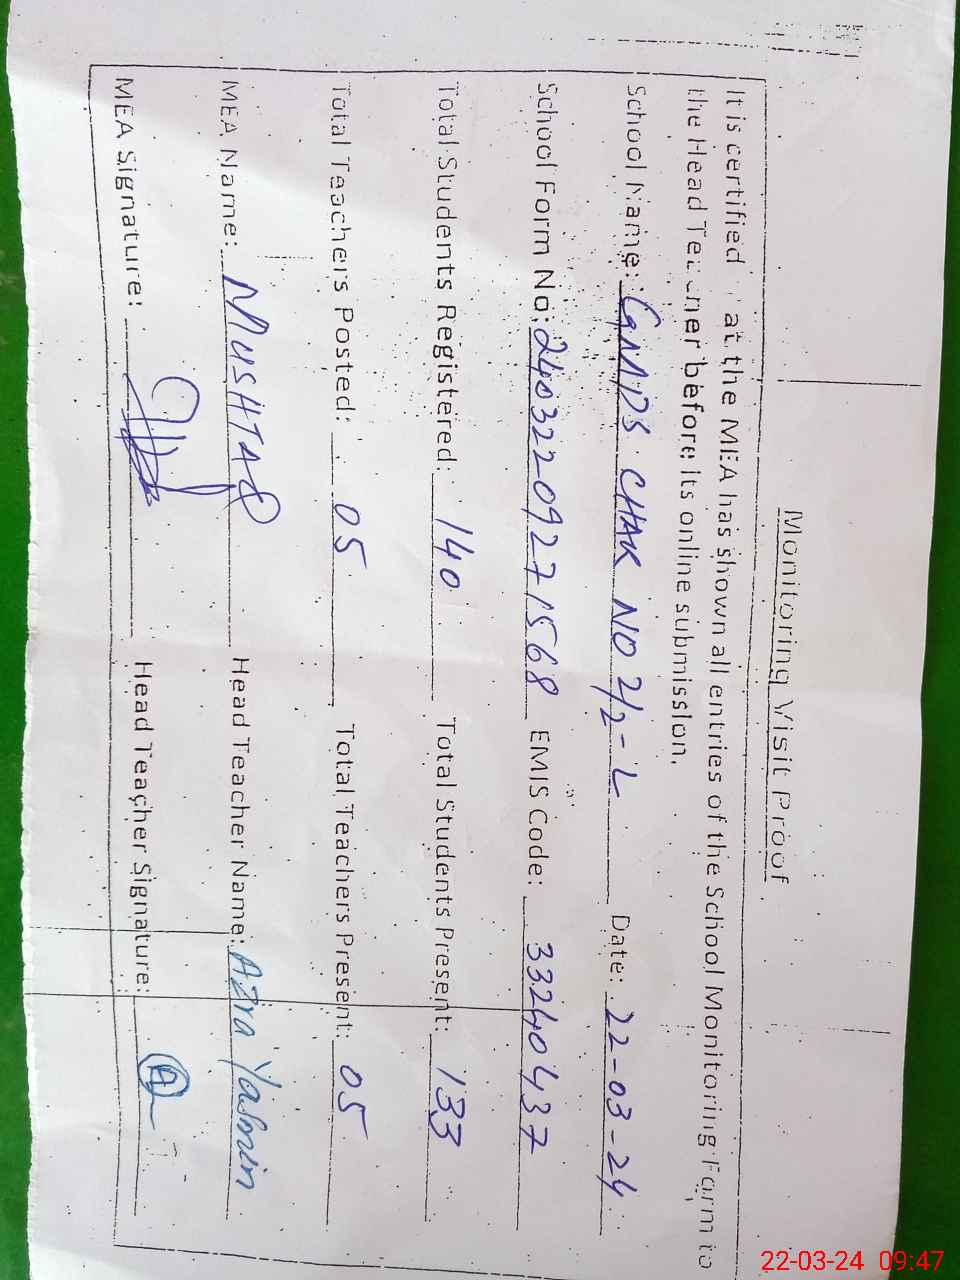 Monitoring Visit Proof
It is certified at the MEA has shown all entries of the School Monitoring Form to
the Head Teacher before its online submission.
School Name: GMPS CHAK NO 2/2-L Date: 22-03-24
School Form No: 24032209271568 EMIS Code: 33240437
Total Students Registered: 140 Total Students Present: 133
Total Teachers Posted: 05 Total Teachers Present: 05
MEA Name: MUSHTAQ Head Teacher Name: Azra Yasmin
MEA Signature: Head Teacher Signature:
22-03-24 09:47